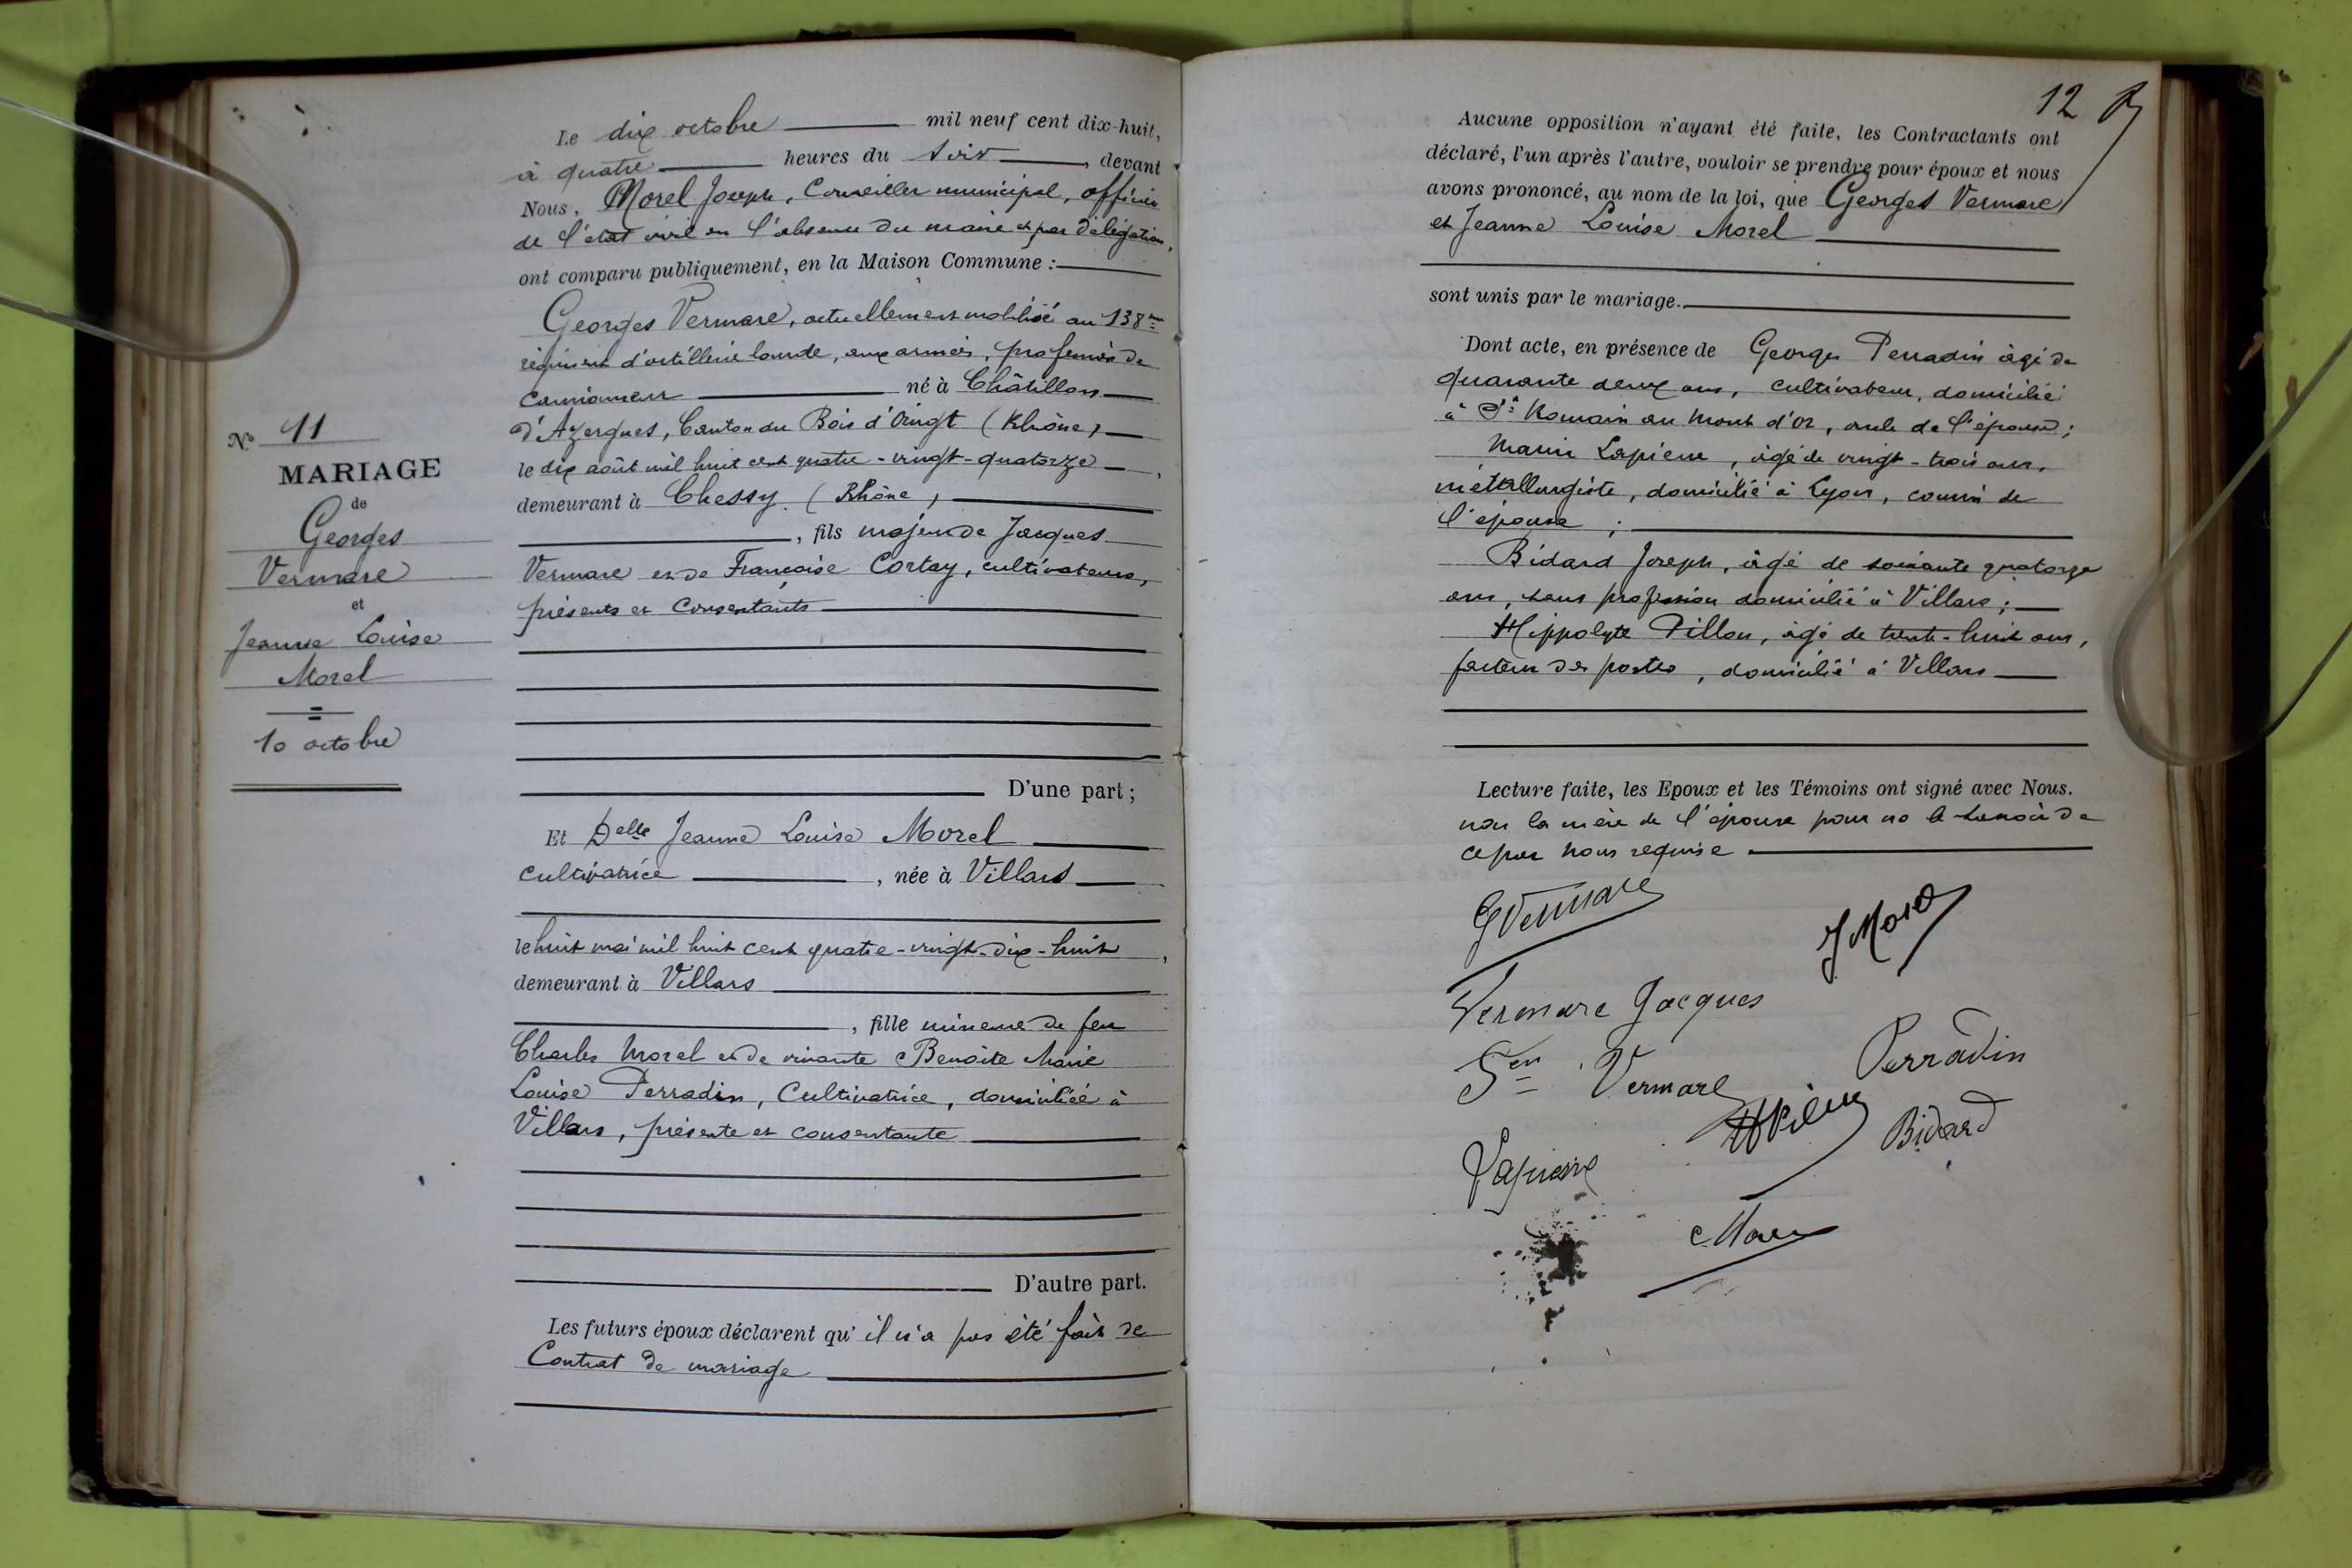 N° 11
MARIAGE
de
Georges
Vermare
et
Jeanne Louise
Morel
10 octobre
Le dix octobre mil neuf cent dix-huit,
à quatre heures du soir, devant
Nous, Morel Joseph, Conseiller municipal, officier
de l'état civil en l'absence du maire et par délégation,
ont comparu publiquement, en la Maison Commune :
Georges Vermare, actuellement mobilisé au 138me
régiment d'artillerie lourde, aux armées, profession de
camionneur né à Châtillon
d'Azergues, Canton du Bois d'Oingt (Rhône)
le dix août mil huit cent quatre-vingt-quatorze,
demeurant à Chessy (Rhône)
, fils majeur de Jacques
Vermare et de Françoise Cortay, cultivateurs,
présents et consentants
D'une part ;
Et Delle Jeanne Louise Morel
cultivatrice, née à Villars
le huit mai mil huit cent quatre-vingt-dix-huit,
demeurant à Villars
, fille mineure de feu
Charles Morel et de vivante Benoîte Marie
Louise Perradin, Cultivatrice, domiciliée à
Villars, présente et consentante
D'autre part.
Les futurs époux déclarent qu'il n'a pas été fait de
Contrat de mariage
12
Aucune opposition n'ayant été faite, les Contractants ont
déclaré, l'un après l'autre, vouloir se prendre pour époux et nous
avons prononcé, au nom de la loi, que Georges Vermare
et Jeanne Louise Morel
sont unis par le mariage.
Dont acte, en présence de Georges Perradin âgé de
quarante deux ans, cultivateur, domicilié
à St Romain au Mont d'or, oncle de l'épouse ;
Marin Lapierre, âgé de vingt-trois ans,
métallurgiste, domicilié à Lyon, cousin de
l'épouse ;
Bidard Joseph, âgé de soixante quatorze
ans, sans profession domicilié à Villars ;
Hippolyte Pillon, âgé de trente-huit ans,
facteur des postes, domicilié à Villars
Lecture faite, les Epoux et les Témoins ont signé avec Nous.
non la mère de l'épouse pour ne le savoir de
ce par nous requise
G Vermare
J Morel
Vermare Jacques
Perradin
Fen Vermare
Bidard
Lapierre
Morel